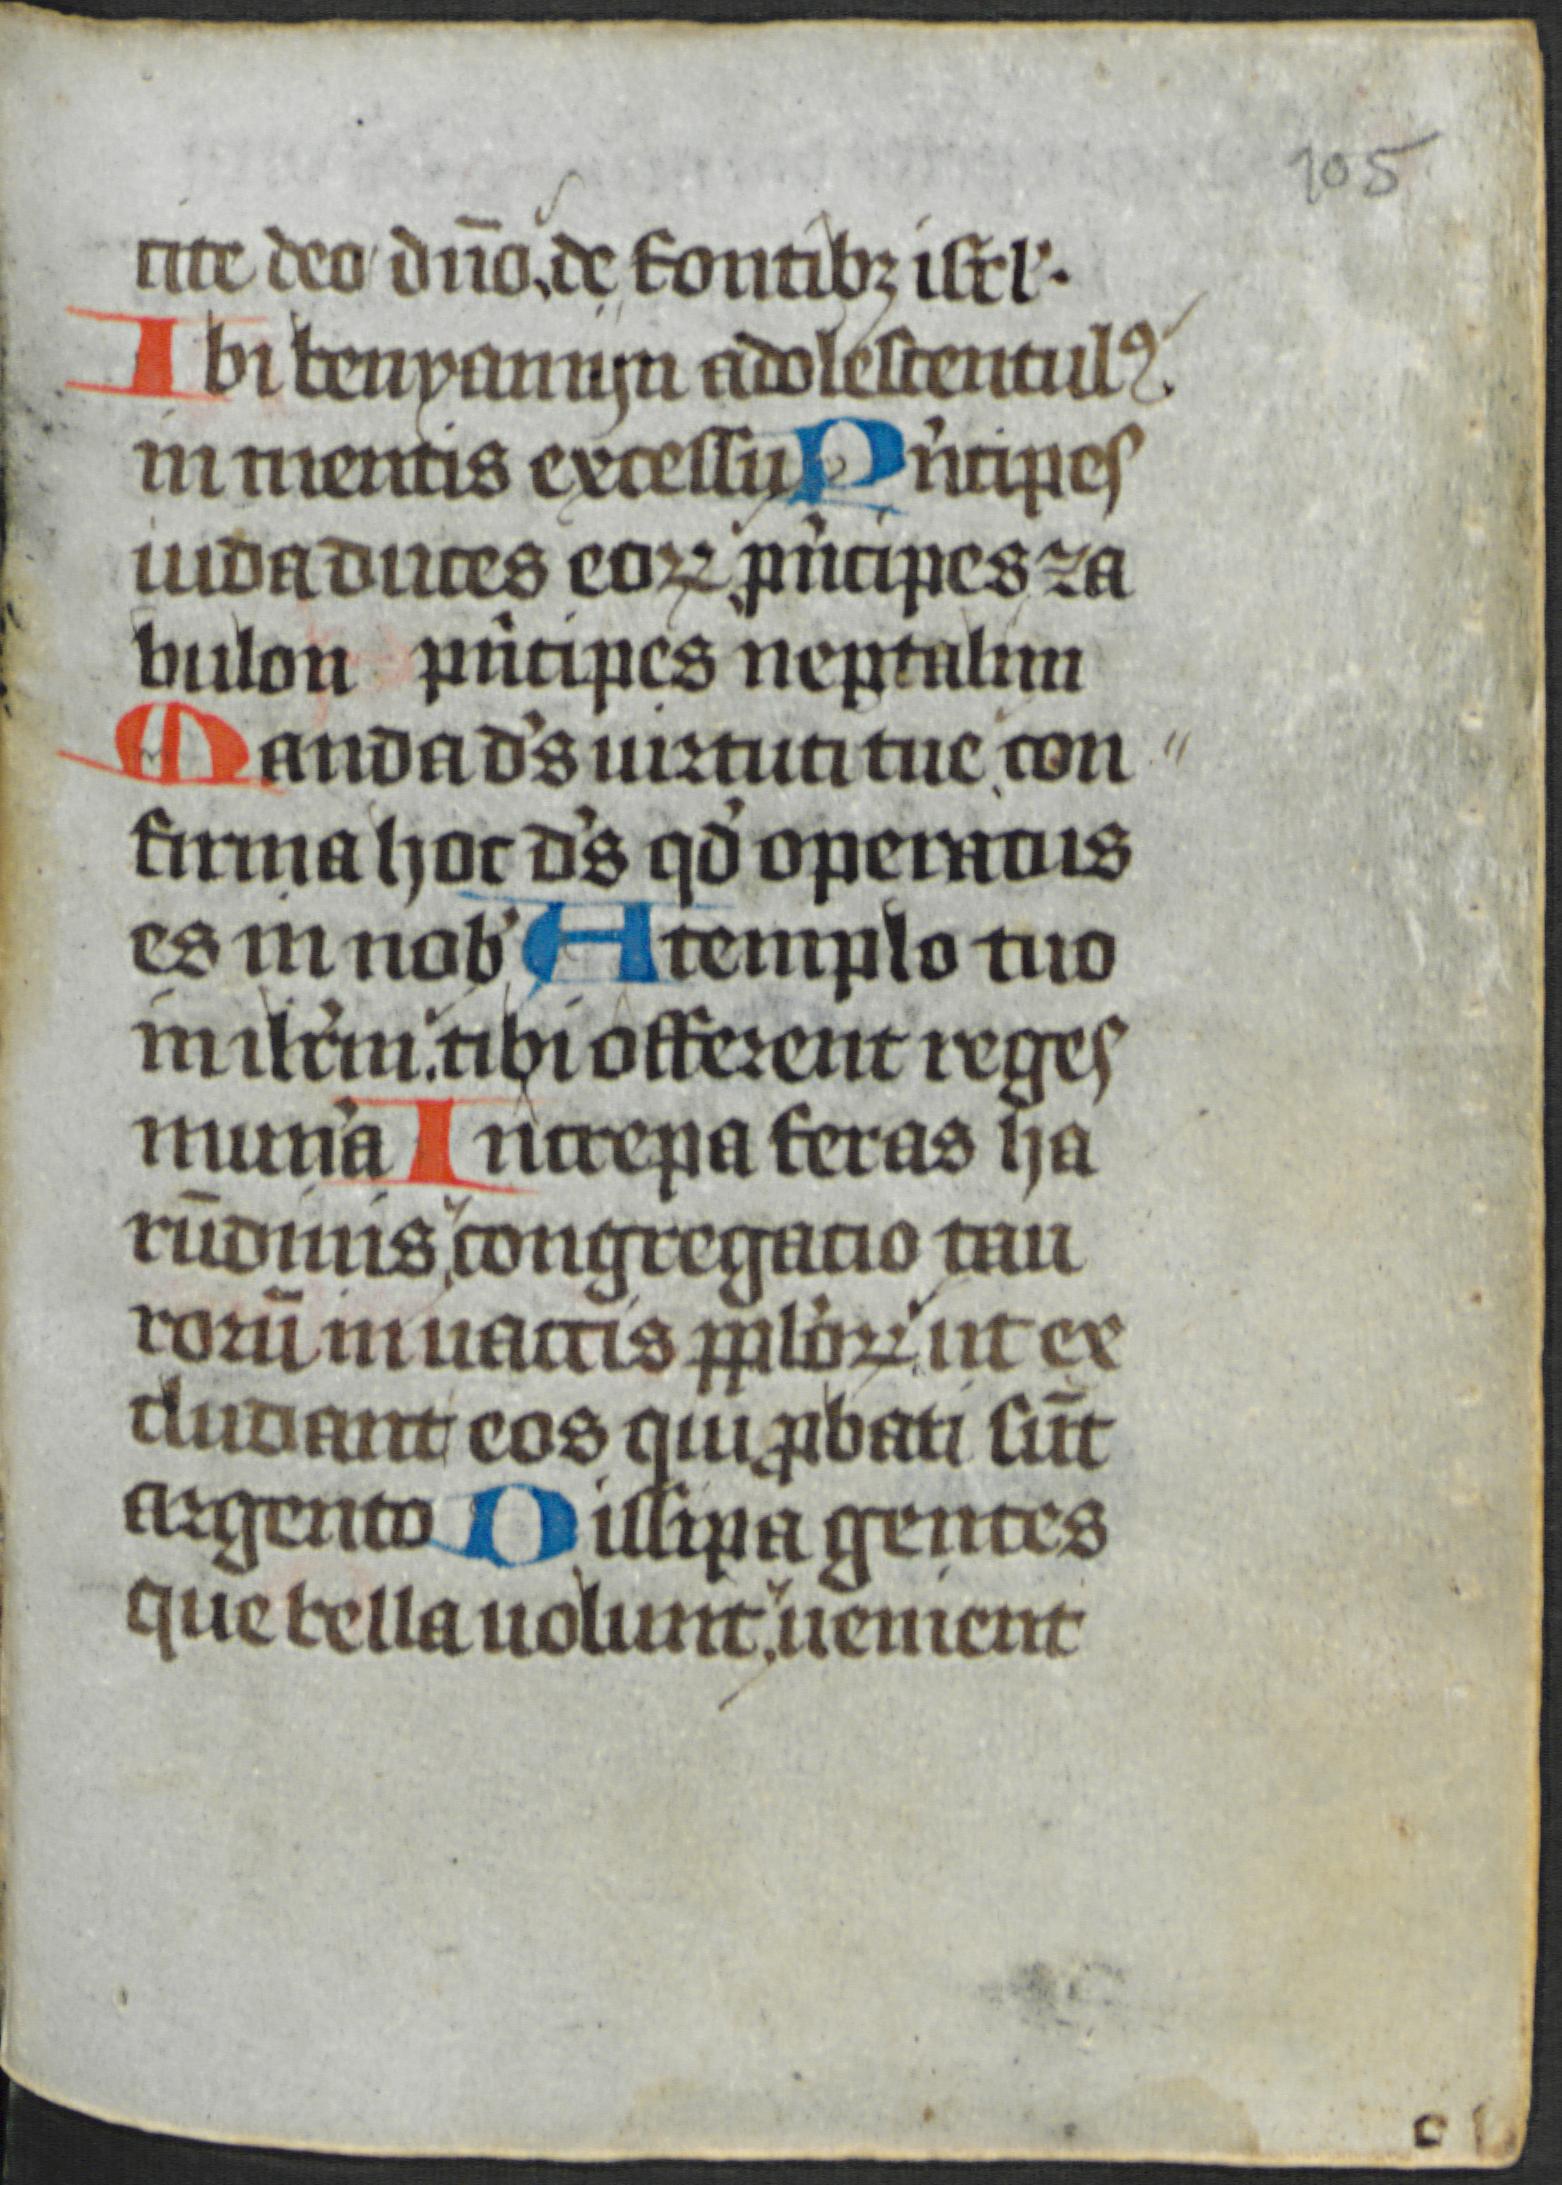 105
cite deo dn̄o. de fontibꝫ isrl'.
Ibi benyamyn adolescentulꝰ
in mentis excessu Pͥncipes
iuda duces eoꝝ pͥncipes za
bulon pͥncipes neptalim
Manda d's uirtuti tue con〃
firma hoc d's qd' operatus
es in nob' A templo tuo
in ilr'm. tibi offerent reges
mun'a Increpa feras ha
rūdinis congregacio tau
rorū in uaccis pplo'ꝝ ut ex
cludant eos qui ꝓbati sūt
argento Dissipa gentes
que bella uolunt. uenient